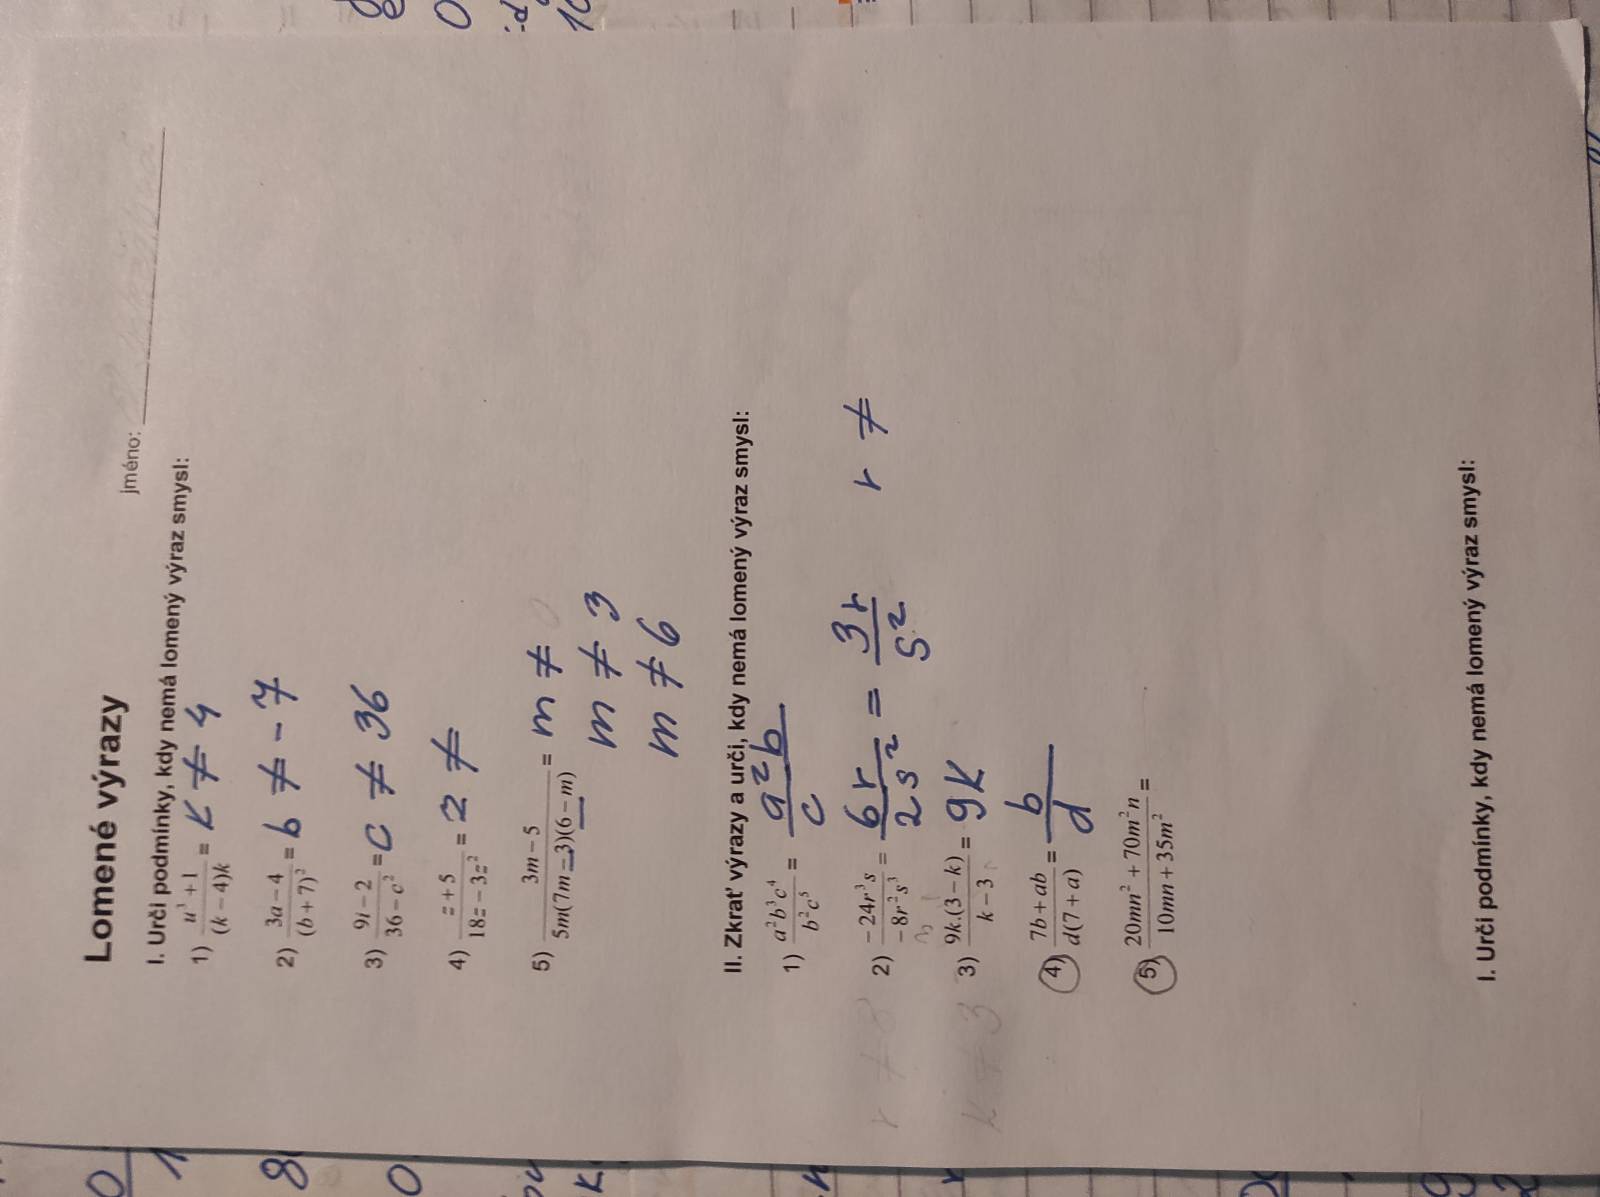 Lomené výrazy
jméno:
I. Urči podmínky, kdy nemá lomený výraz smysl:
1) (u³ + 1)/((k − 4)k) = k ≠ 4
2) (3a − 4)/((b + 7)²) = b ≠ −7
3) (9i − 2)/(36 − c²) = c ≠ 36
4) (z + 5)/(18z − 3z²) = z ≠
5) (3m − 5)/(5m(7m − 3)(6 − m)) = m ≠ 0
m ≠ 3
m ≠ 6
II. Zkrať výrazy a urči, kdy nemá lomený výraz smysl:
1) (a²b³c⁴)/(b²c⁵) = (a²b)/c
2) (−24r³s)/(−8r²s³) = (6r)/(2s²) = (3r)/(s²) r ≠
r ≠ 8
3) (9k.(3 − k))/(k − 3) = 9k
k ≠ 3
4) (7b + ab)/(d(7 + a)) = b/d
5) (20mn² + 70m²n)/(10mn + 35m²) =
I. Urči podmínky, kdy nemá lomený výraz smysl: